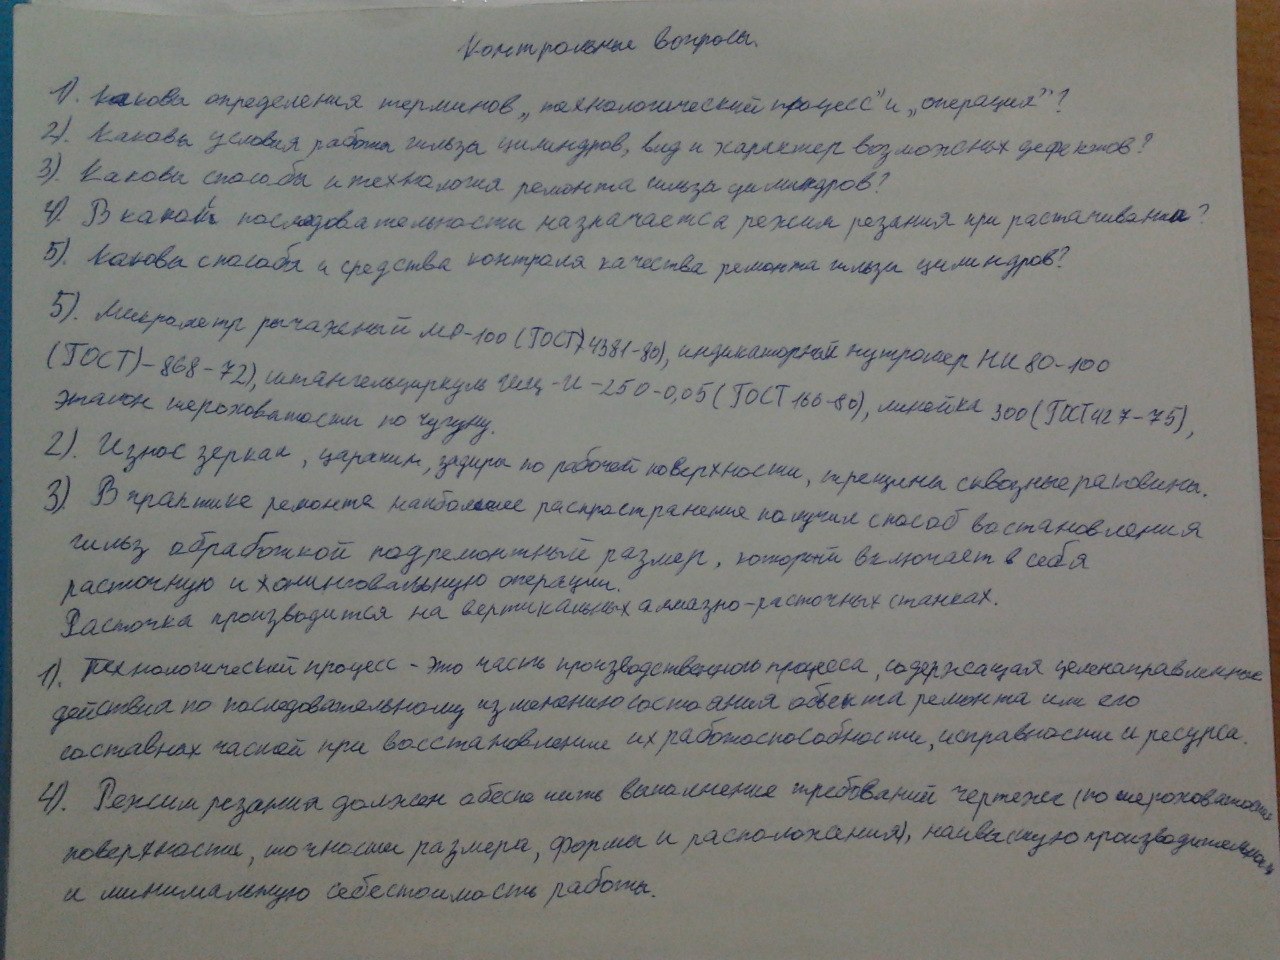 Контрольные вопросы.
1). Каковы определения терминов „технологический процесс" и „операция"?
2). Каковы условия работы гильзы цилиндров, вид и характер возможных дефектов?
3). Каковы способы и технология ремонта гильзы цилиндров?
4). В какой последовательности назначается режим резания при растачивании?
5). Каковы способы и средства контроля качества ремонта гильзы цилиндров?
5). Микрометр рычажный МР-100 (ГОСТ) 4381-80), индикаторный нутромер НИ 80-100
(ГОСТ)-868-72), штангельциркуль ШЦ-II-250-0,05 (ГОСТ 166-80), линейка 300 (ГОСТ 427-75),
эталон шероховатости по чугуну.
2). Износ зеркал, царапин, задиры по рабочей поверхности, трещины сквозные раковины.
3) В практике ремонта наибольшее распространение получил способ востановления
гильз обработкой подремонтный размер, который включает в себя
расточную и хонинговальную операции.
Расточка производится на вертикальных алмазно-расточных станках.
1). Технологический процесс - это часть производственного процеса, содержащая целенаправленные
действия по последовательному изменению состояния объекта ремонта или его
составных частей при восстановление их работоспособности, исправности и ресурса.
4). Режим резания должен обеспечить выполнение требований чертежа (по шероховатости
поверхности, точности размера, формы и расположения), наивысшую производительность
и минимальную себестоимость работы.